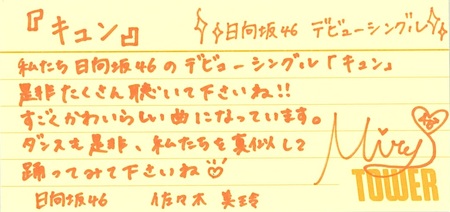 『キュン』 日向坂46 デビューシングル
私たち日向坂46のデビューシングル「キュン」
是非たくさん聴いて下さいね!!
すごくかわいらしい曲になっています。
ダンスも是非、私たちを真似して
踊ってみて下さいね♡
日向坂46 佐々木 美玲
Mirei
TOWER